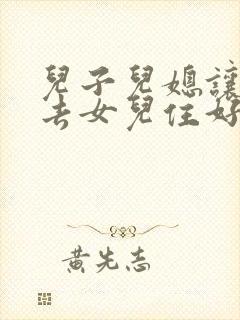 兒子兒媳讓
去女兒住好
黃先志